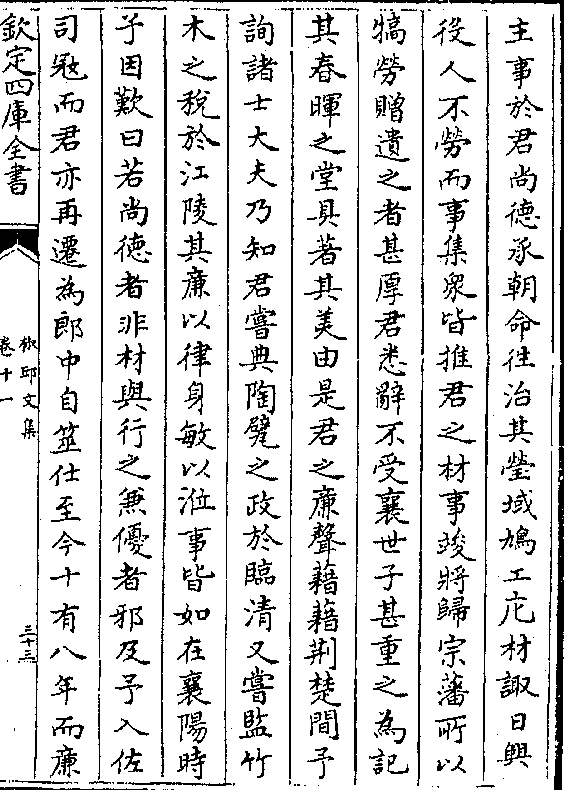 主事於君尚德承朝命往治其塋域鳩工庀材諏日興
役人不勞而事集衆皆推君之材事竣將歸宗藩所以
犒勞贈遺之者甚厚君悉辭不受襄世子甚重之為記
其春暉之堂具著其美由是君之亷聲藉藉荆楚間予
詢諸士大夫乃知君嘗典陶甓之政於臨清又嘗監竹
木之稅於江陵其亷以律身敏以涖事皆如在襄陽時
予因歎曰若尚德者非材與行之兼優者邪及予入佐
司宼而君亦再遷為郎中自筮仕至今十有八年而亷
欽定四庫全書
椒邱文集
卷十一
三十三